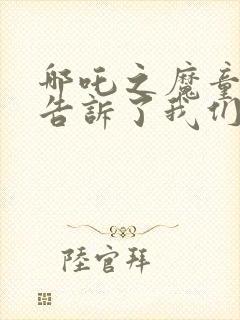 哪吒之魔童
告訴了我们
陸官拜